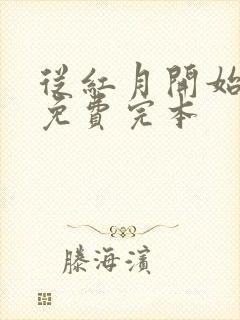 從紅月開始
免費完本
滕海濱